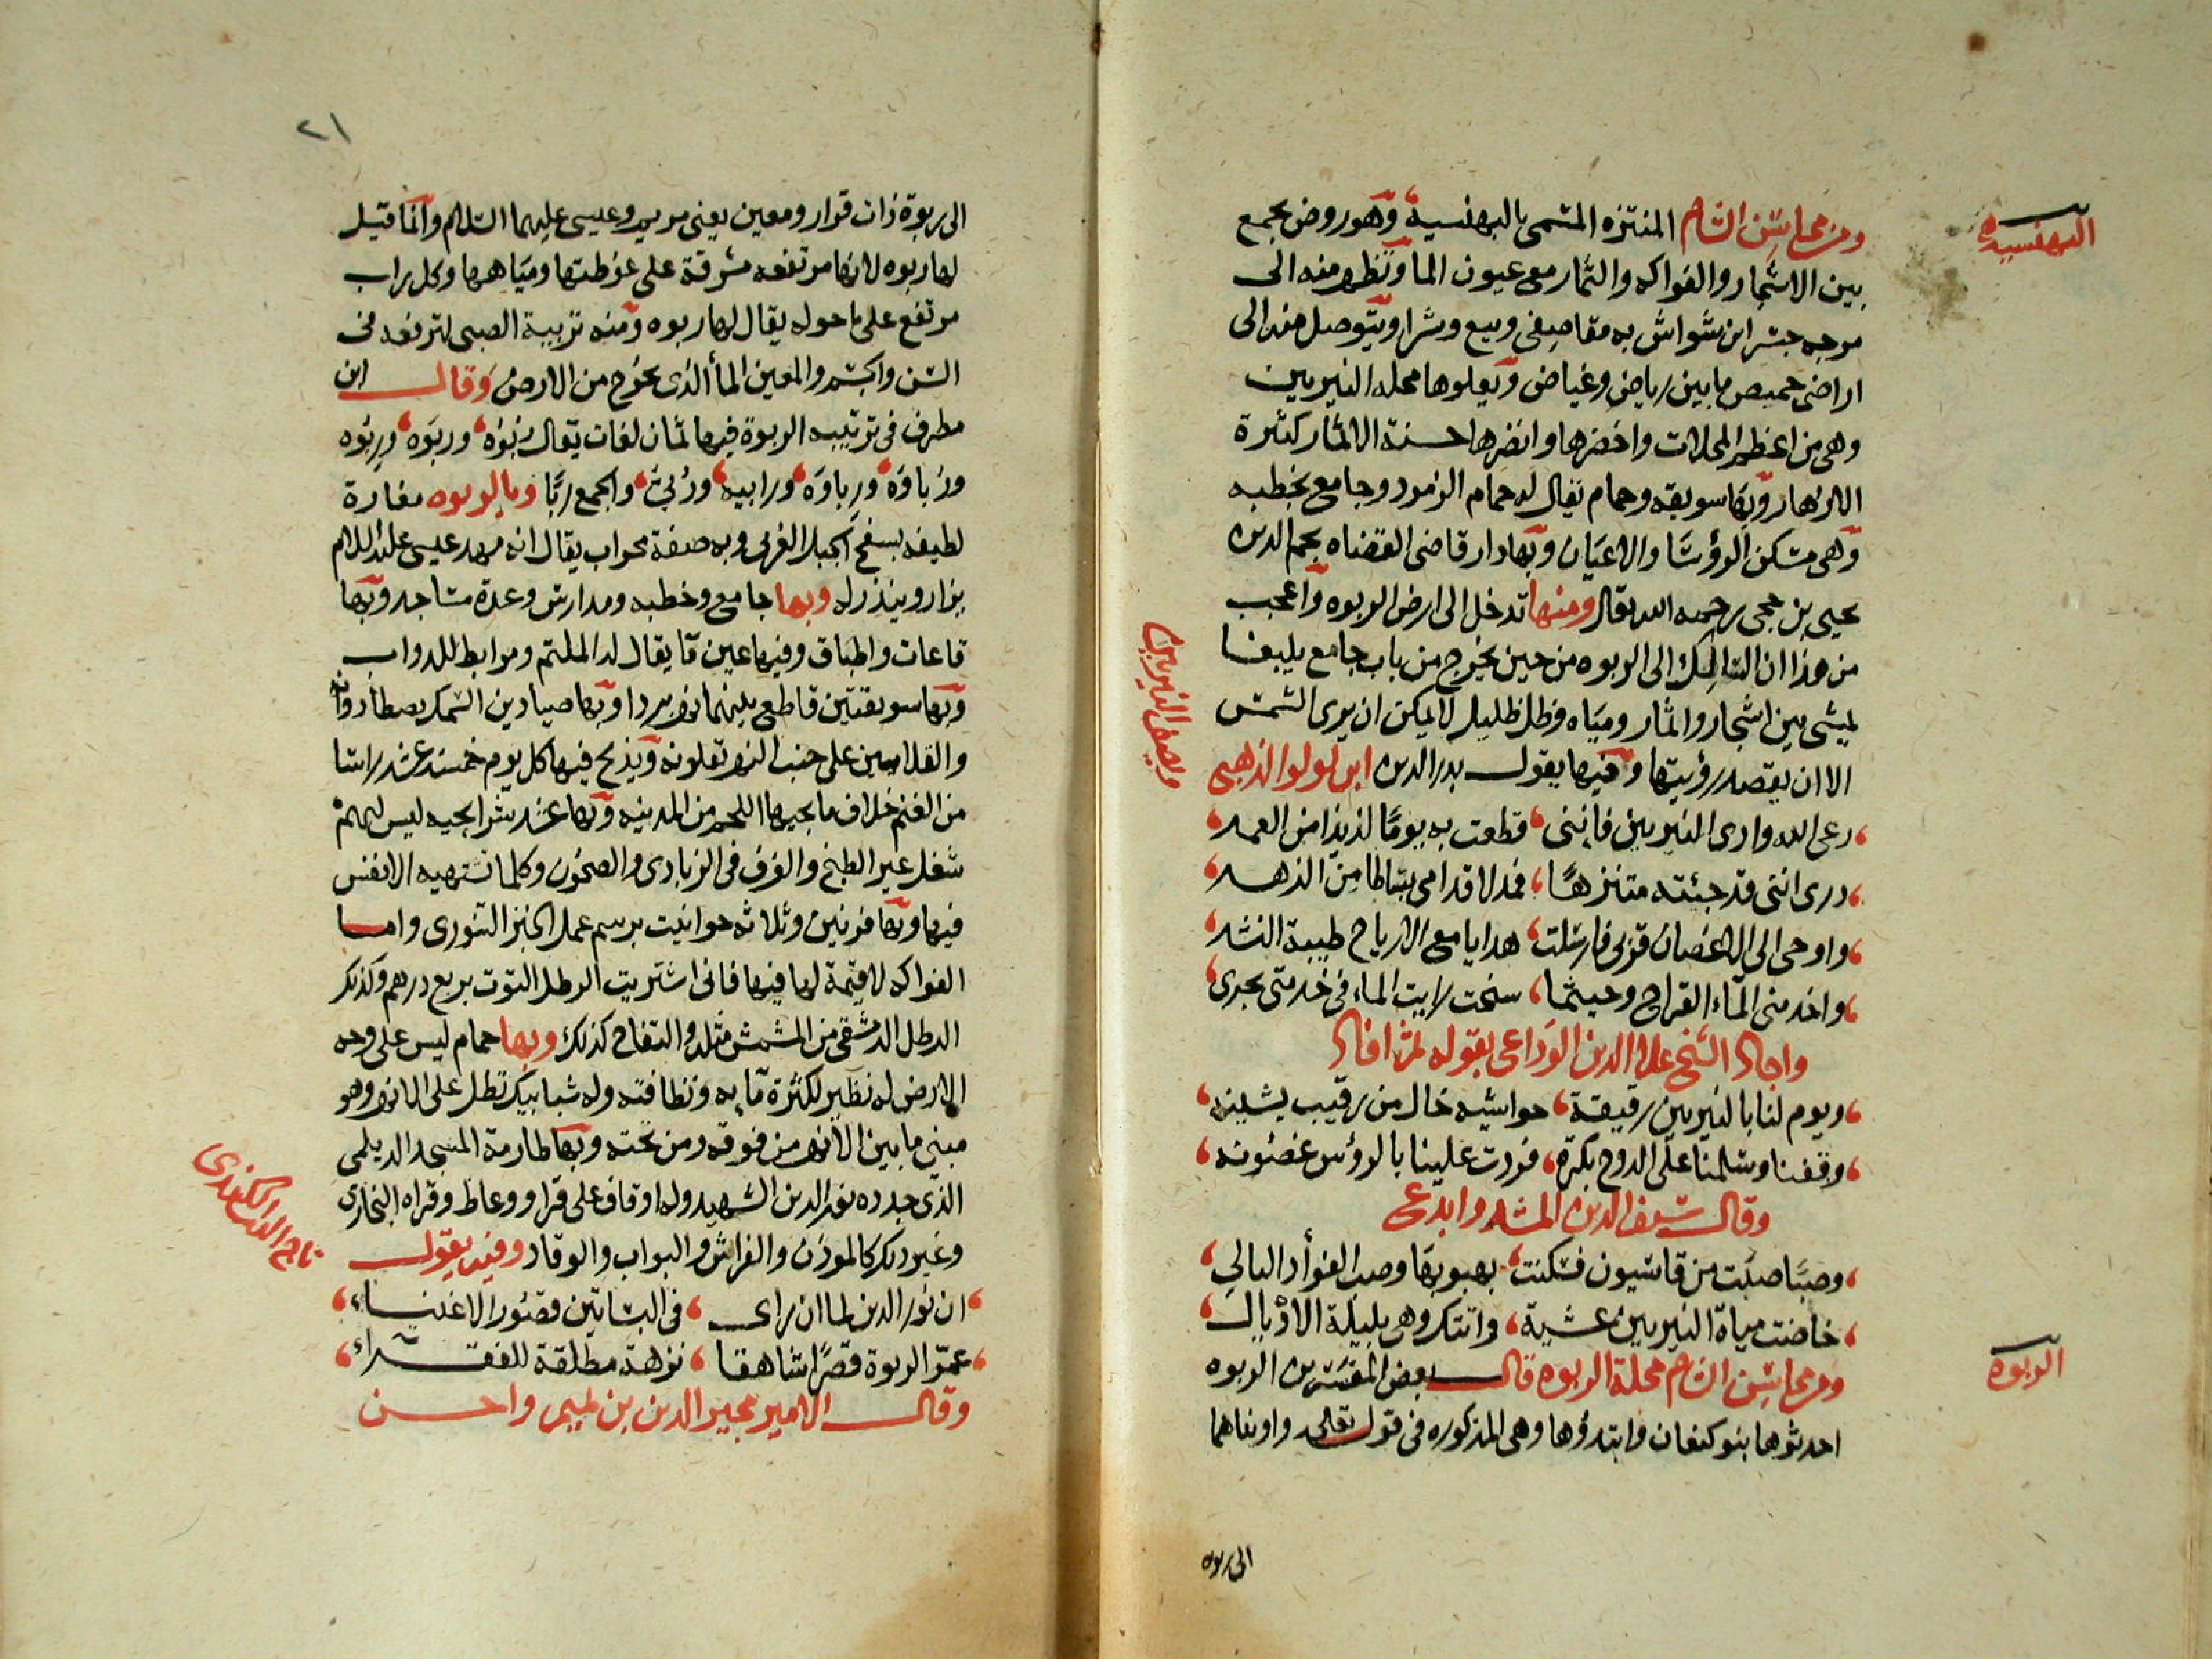 البهنسيه
ومن محاسن الشام المنتزه المسمى بالبهنسية وهو روض يجمع
بين الاشجار والفواكه والثمار مع عيون الما وتظهر منه الى
مرجه جسر ابن شواش به مقاصفى وبيع وشرا ويتوصل منه الى
اراضى حميص ما بين رياض وغياض ويعلوها محله النيربين
وهى من اعظم المحلات واخضرها وانضرها حسنة الاثمار كثرة
الازهار وبها سويقه وحمام يقال له حمام الزمرد وجامع بخطبه
وهى مسكن الرؤسا والاعيان وبها دار قاضى القضاه نجم الدين
يحيى بن حجى رحمه الله تعالى ومنها تدخل الى ارض الربوه واعجب
من هذا ان السالك الى الربوه من حين يخرج من باب جامع يلبغا
يمشى بين اشجار واثمار ومياه وظل ظليل لا يمكن ان يرى الشمس
الا ان يقصد رؤيتها وفيها يقول بدر الدين ابن لولو الذهبى
وصف النيربين
رعى الله وادى النيربين فاننى قطعت به يومًا لذيذا من العمر
درى اننى قد جئته متنزهًا فمد لاقدامى بساطا من الزهر
واوحى الى الاغصان قربى فارسلت هدايا مع الارياح طيبة النشر
واخدمنى الماء القراح وحيثما سنحت رايت الماء فى خدمتى يجرى
واجاد الشيخ علا الدين الوداعى بقوله
ويوم لنا بالنيربين رقيقة حواشيه خال من رقيب يشينه
وقفنا وسلمنا على الدوح بكرة فردت علينا بالرؤس غصونه
وقال سيف الدين المشد وابدع
وصبا صبت من قاسيون فسكنت بهبوبها وصب الفؤاد البالى
خاضت مياه النيربين عشية واتتك وهى بليلة الاذيال
الربوه
ومن محاسن الشام محلة الربوه قال بعض المفسرين الربوه
احدثوها بنو كنعان وابتدؤها وهى المذكوره فى قوله تعالى واويناهما
الى ربوه
٢١
الى ربوة ذات قرار ومعين يعنى مريم وعيسى عليهما السلام وانما قيل
لها ربوه لانها مرتفعه مشرفة على غوطتها ومياهها وكل راب
مرتفع على ما حوله يقال لها ربوه ومنه تربية الصبى لترفعه فى
السن والجسم والمعين الما الذى يخرج من الارض وقال ابن
مطرف فى ترتيبه الربوة فيها ثمان لغات يقال ربوه وربوه وربوه
ورباوة ورباوه ورابيه وربى والجمع ربا وبالربوه مغارة
لطيفه بسفح الجبل الغربى وبه صفة محراب يقال انه مهد عيسى عليه السلام
يزار وينذر له وبها جامع وخطبه ومدارس وعدة مساجد وبها
قاعات واطباق وفيها عين ما يقال له الملثم ومرابط للدواب
وبها سويقتين قاطع بينهما نهر بردا وبها صيادين السمك يصطادونه
والقلايين على جنب النهر تقلونه ويذبح فيها كل يوم خمسة عشر راسا
من الغنم خلاف ما يجيها اللحم من المدينه وبها عشر شرايحيه ليس لهم
شغل غير الطبخ والغرف فى الزبادى والصحون وكلما تشتهيه الانفس
فيها وبها فرنين وثلاثه حوانيت برسم عمل الخبز التنورى واما
الفواكه لا قيمة لها فيها فانى اشتريت الرطل التوت بربع درهم وكذلك
الرطل الدمشقى من المشمش مثله والتفاح كذلك وبها حمام ليس على وجه
الارض له نظير لكثرة مايه ونظافته وله شبابيك تطل على الانهر وهو
مبنى ما بين الانهر من فوقه ومن تحته وبها طارمة المسجد الديلمى
الذى جدده نور الدين الشهيد وله اوقاف على قرا ووعاظ وقراه البخارى
وغير ذلك كالموذن والفراش والبواب والوقاد وفيه يقول
تاج الدين الكندى
ان نور الدين لما ان راى فى البساتين قصور الاغنياء
عمر الربوة قصرًا شاهقا نزهة مطلقة للفقراء
وقال الامير مجير الدين بن تميم واحسن